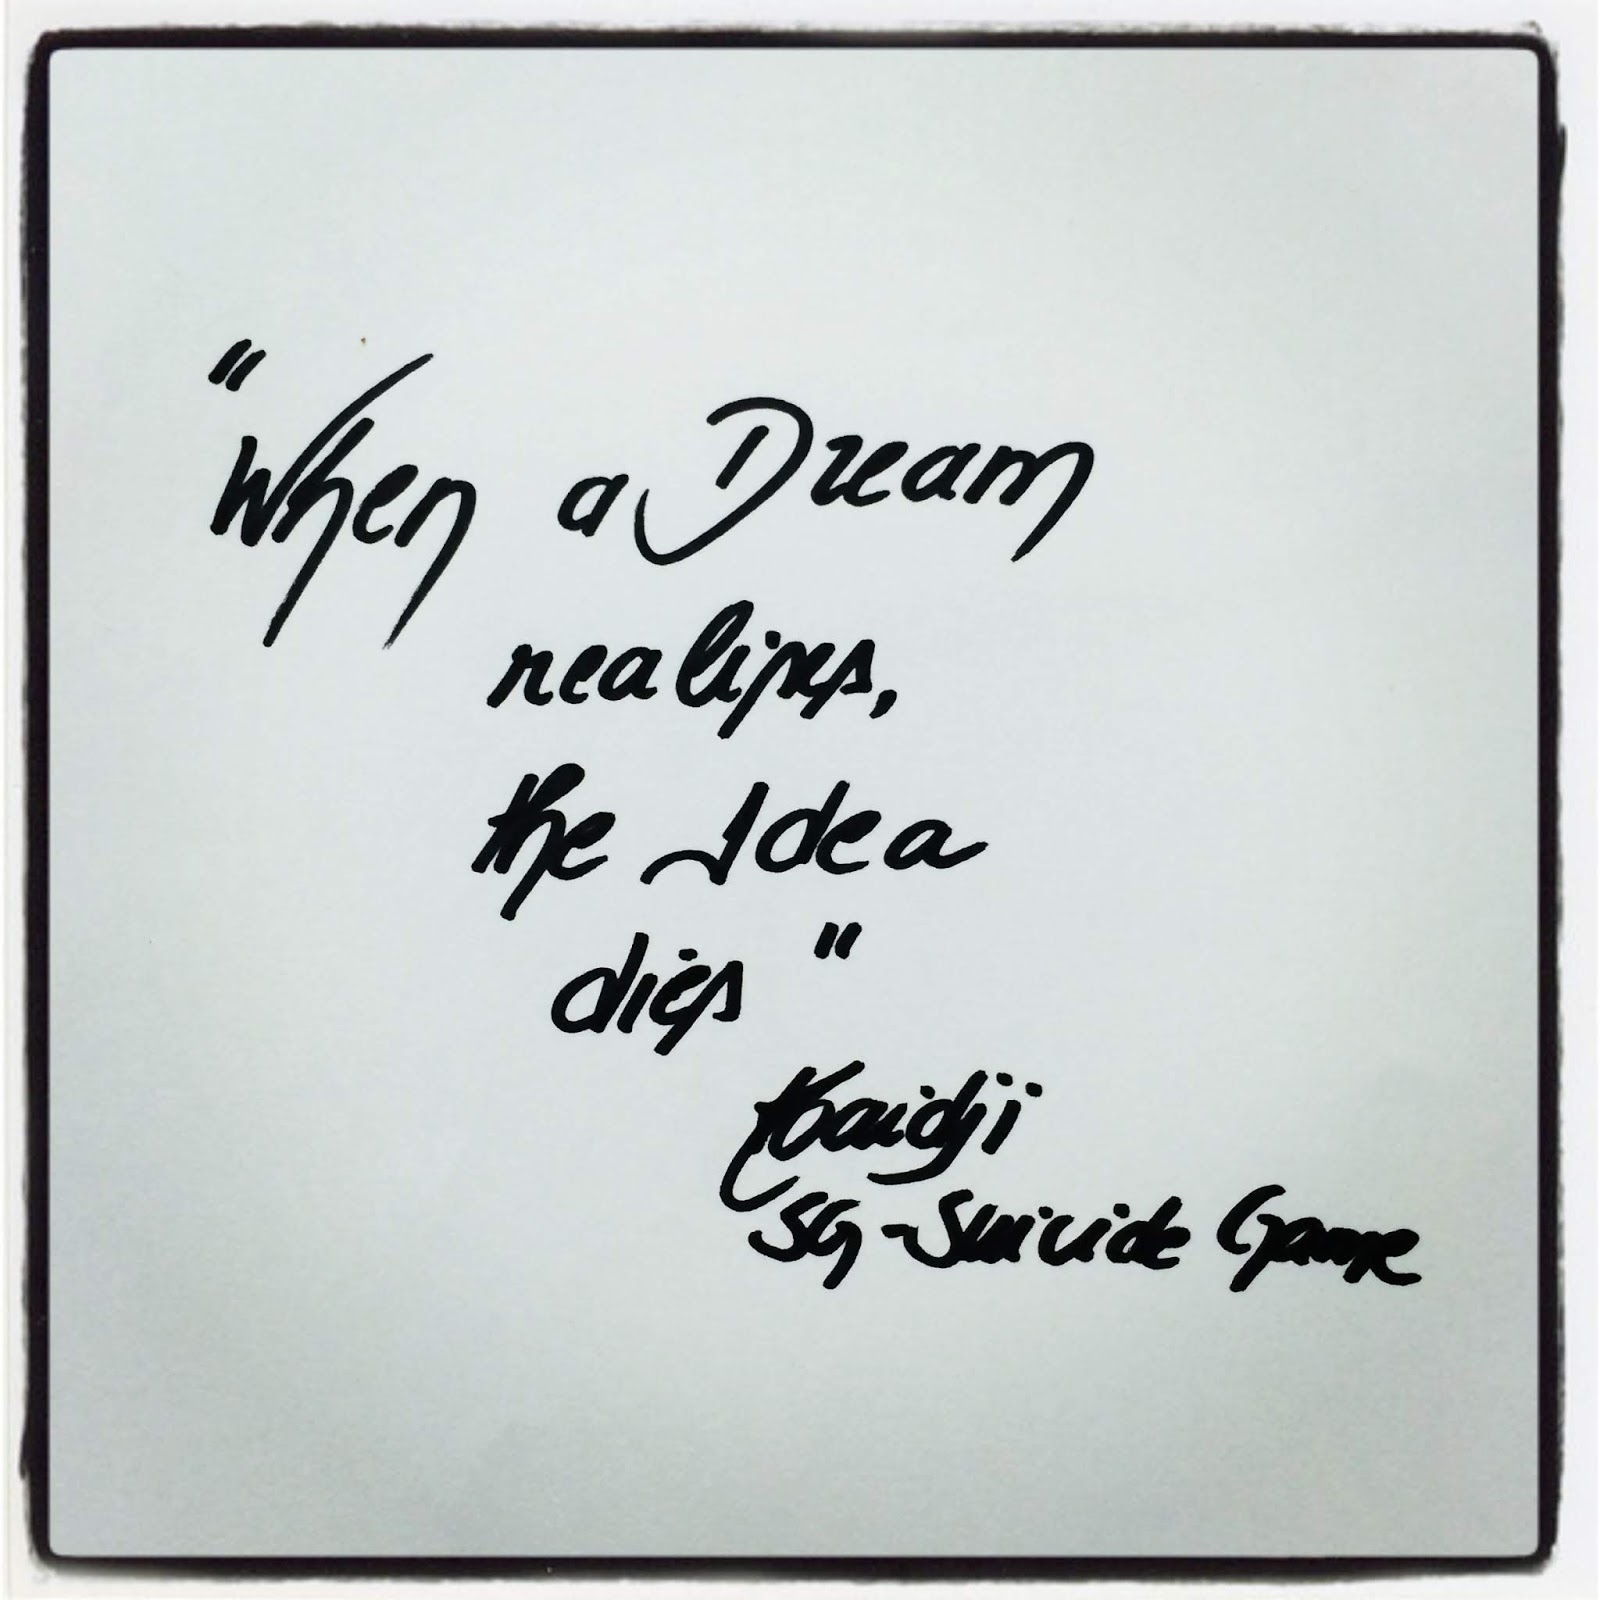 "When a Dream
realises,
the Idea
dies"
Kaidji
SG - Suicide Game